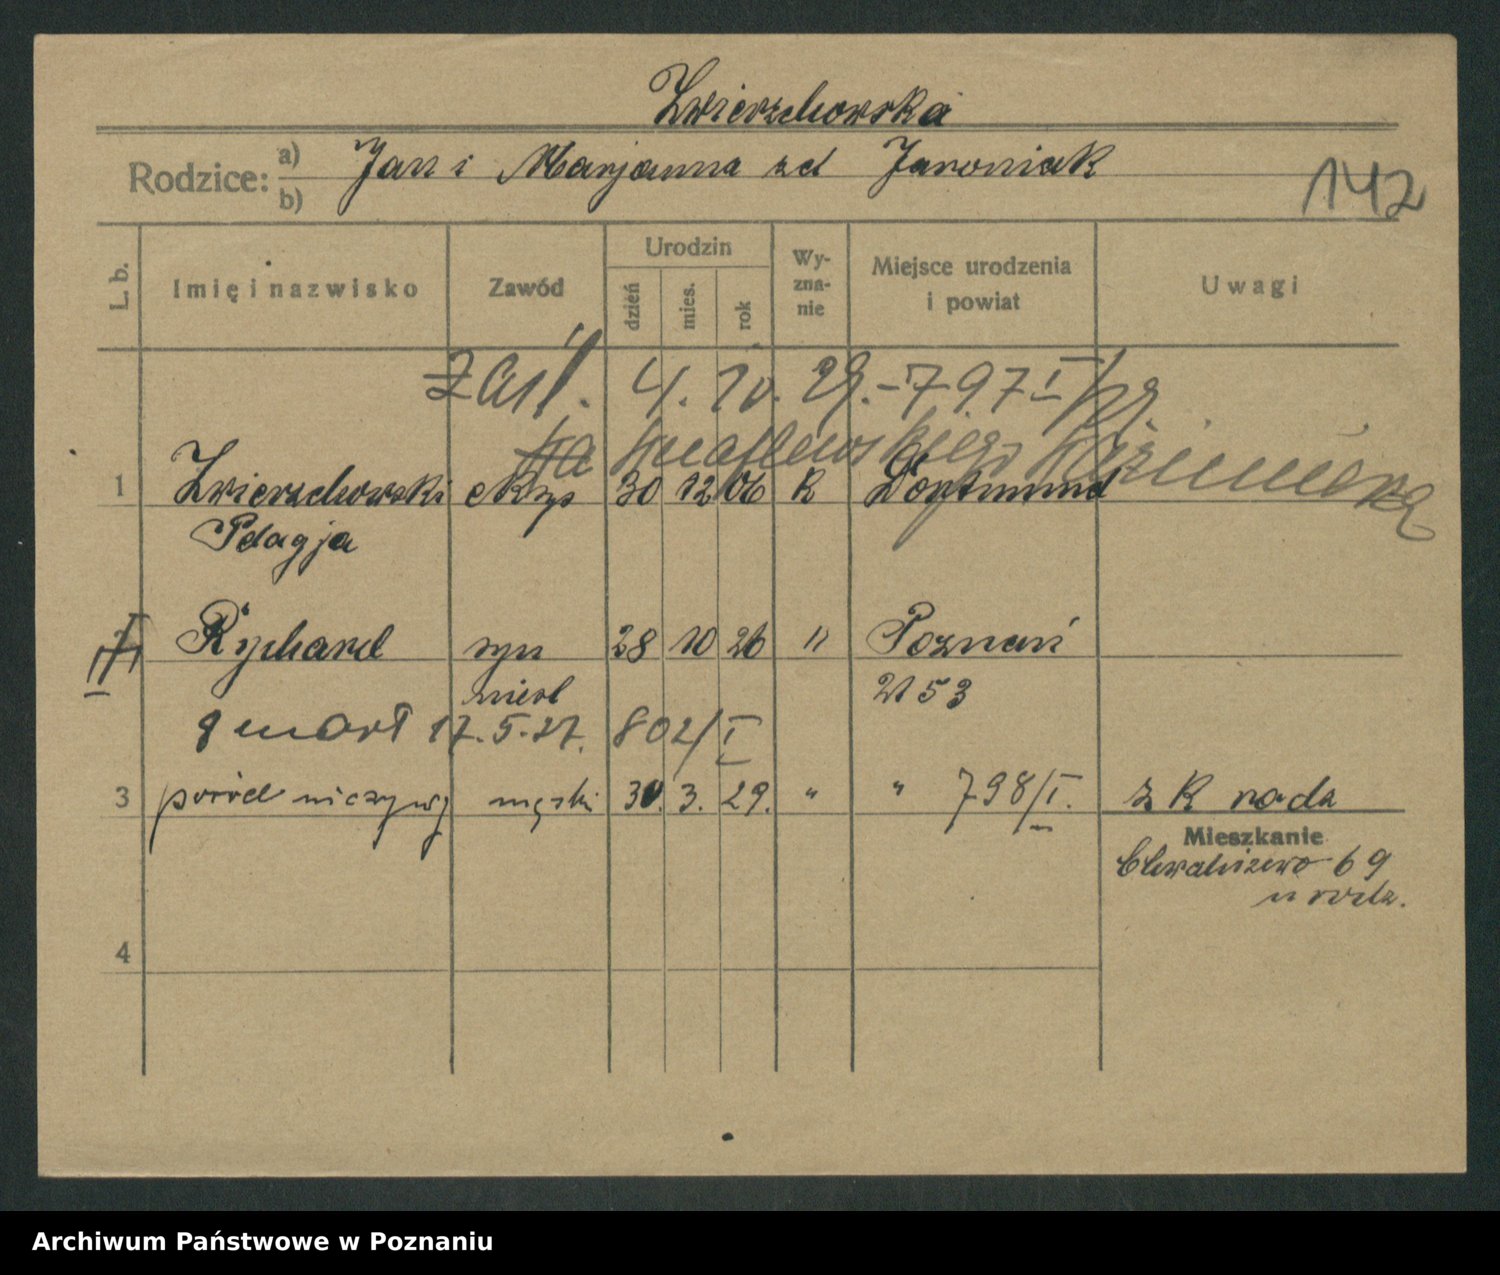 Zwierzchowska
Rodzice: a) b) Jan i Marjanna zd Jaroniak
142
L. b. Imię i nazwisko Zawód Urodzin dzień mies. rok Wyznanie Miejsce urodzenia i powiat Uwagi
zaśl. 4. 10. 29. - 797 I/
Kazimierza
1 Zwierzchowski 30 12 06 R Dortmund
Pelagja
Rychard syn 28 10 26 " Poznań
nieśl 2153
zmarł 17. 5. 27. 802/I
3 poród nieżywy męski 30. 3. 29. " " 798/I. z K rada
Mieszkanie
Chwaliszewo 69
u rodz.
4
Archiwum Państwowe w Poznaniu